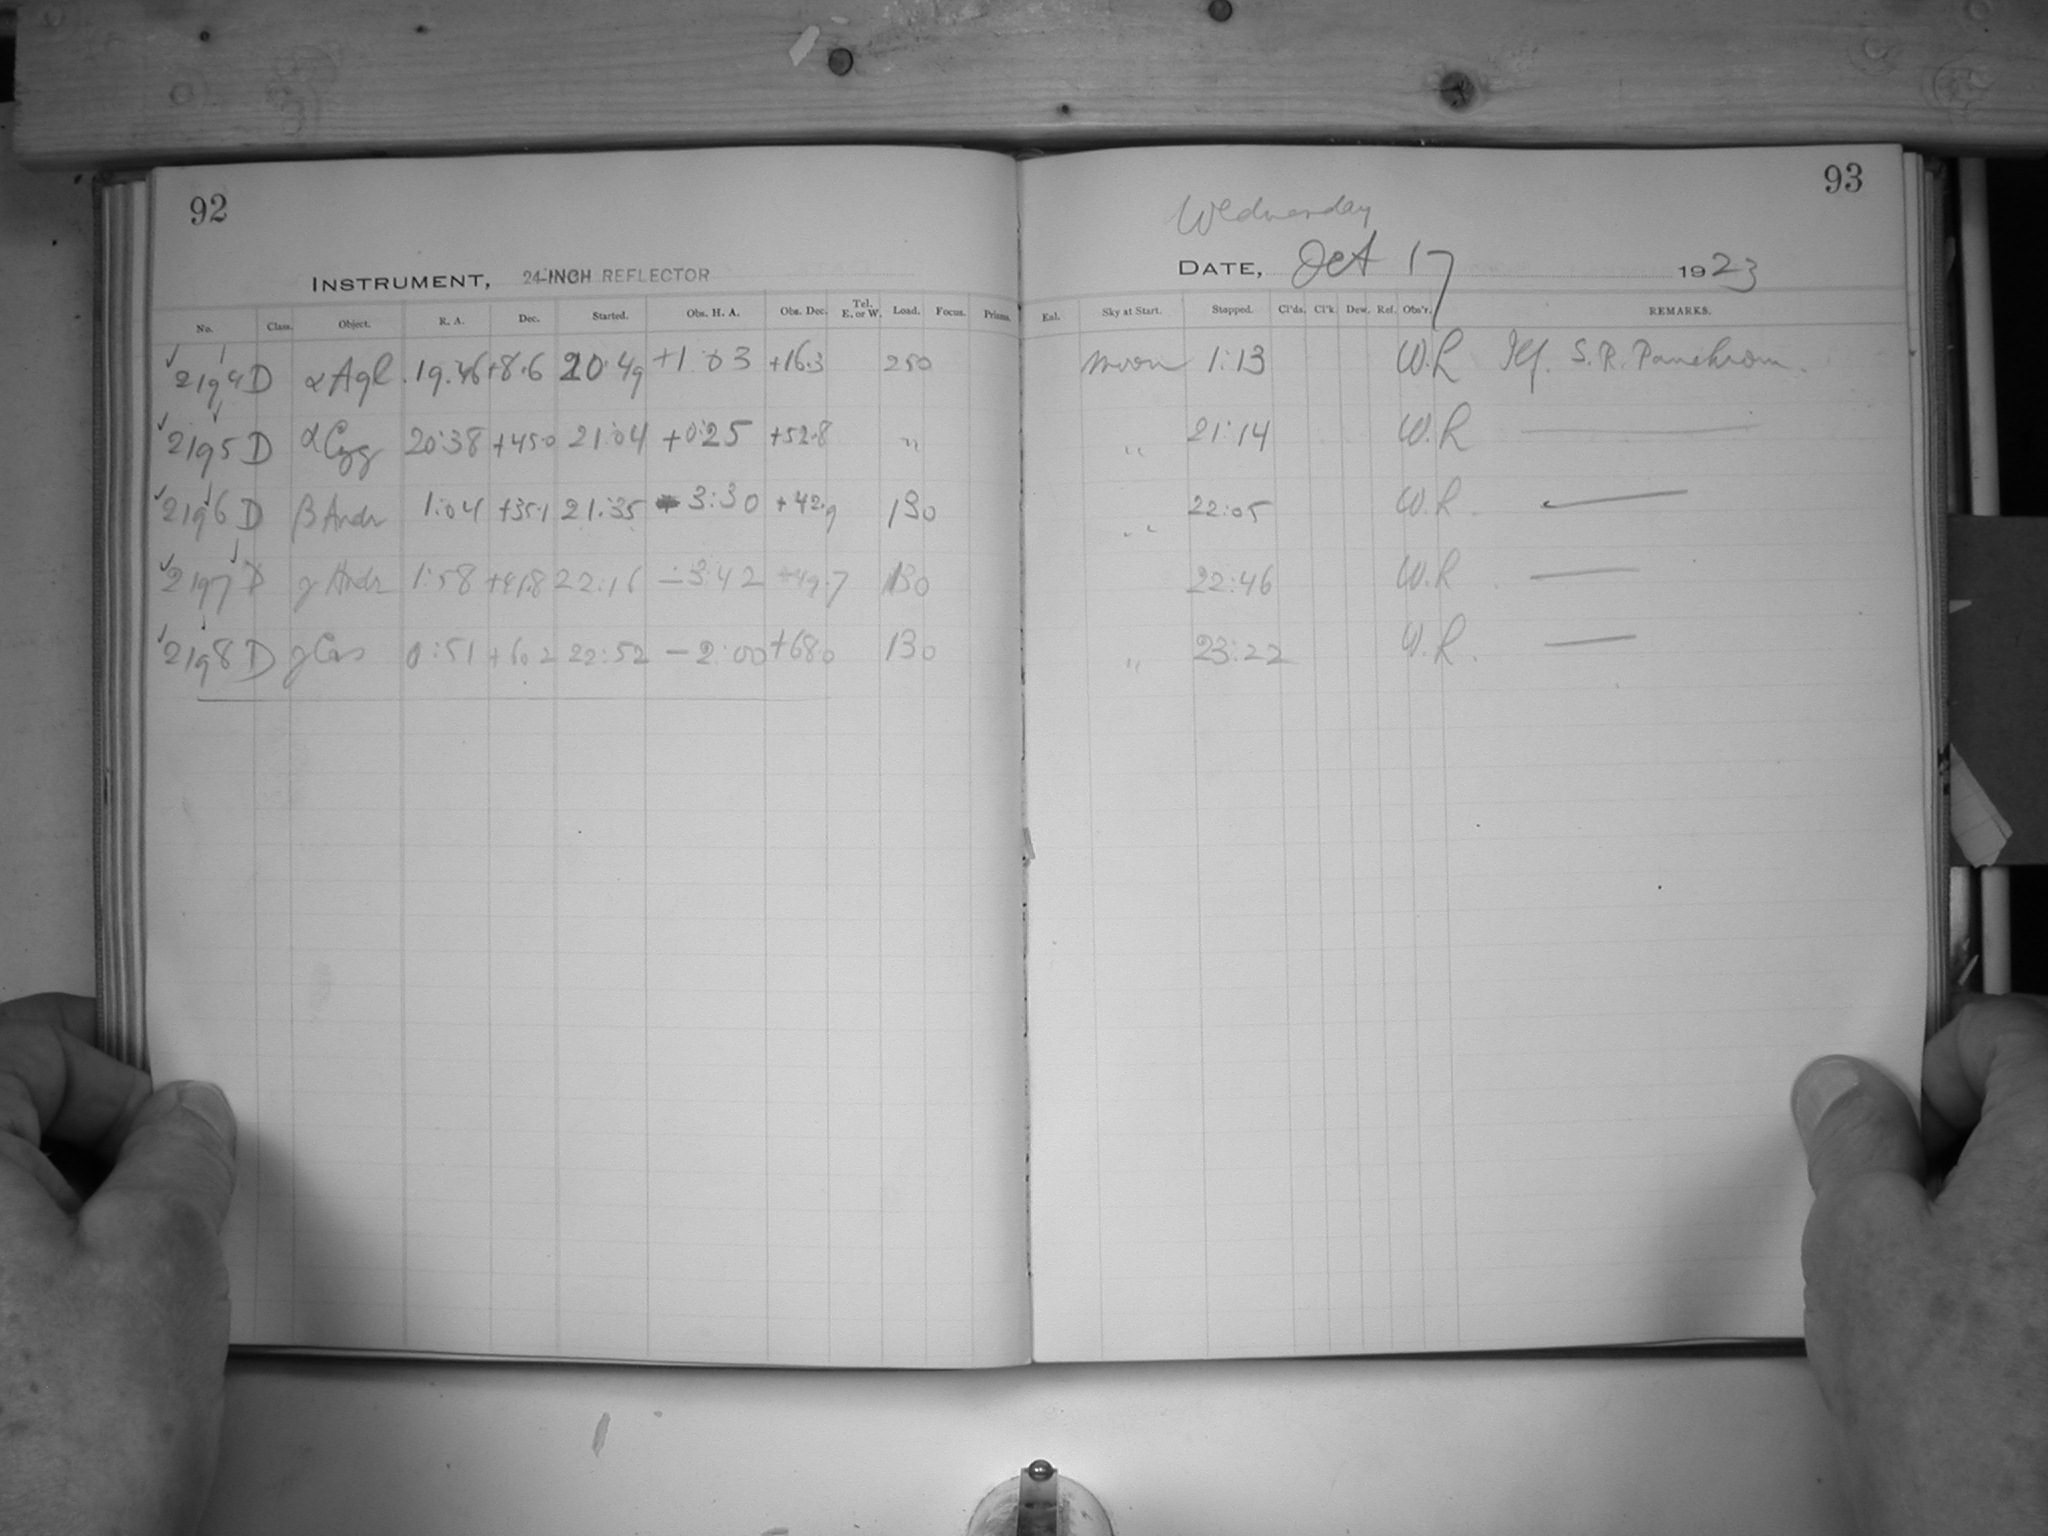 92
INSTRUMENT, 24-INCH REFLECTOR
No. Class. Object. R. A. Dec. Started. Obs. H. A. Obs. Dec. Tel. E. or W. Load. Focus. Prisms.
2194 D α Aql 19.46 +8.6 20:49 +1:03 +16.3 250
2195 D α Cyg 20:38 +45.0 21:04 +0:25 +52.8 "
2196 D β Andr 1:04 +35.1 21:35 - 3:30 +42.9 130
2197 D γ Andr 1:58 +41.8 22:16 -3:42 +49.7 130
2198 D γ Cas 0:51 +60.2 22:52 -2:00 +68.0 130
93
Wednesday
DATE, Oct 17 1923
Enl. Sky at Start. Stopped. Cl'ds. Cl'k Dew. Ref. Obs'r. REMARKS.
moon 1:13 W.R Ilf. S.R. Panchrom.
" 21:14 W.R
" 22:05 W.R.
22:46 W.R.
" 23:22 W.R.